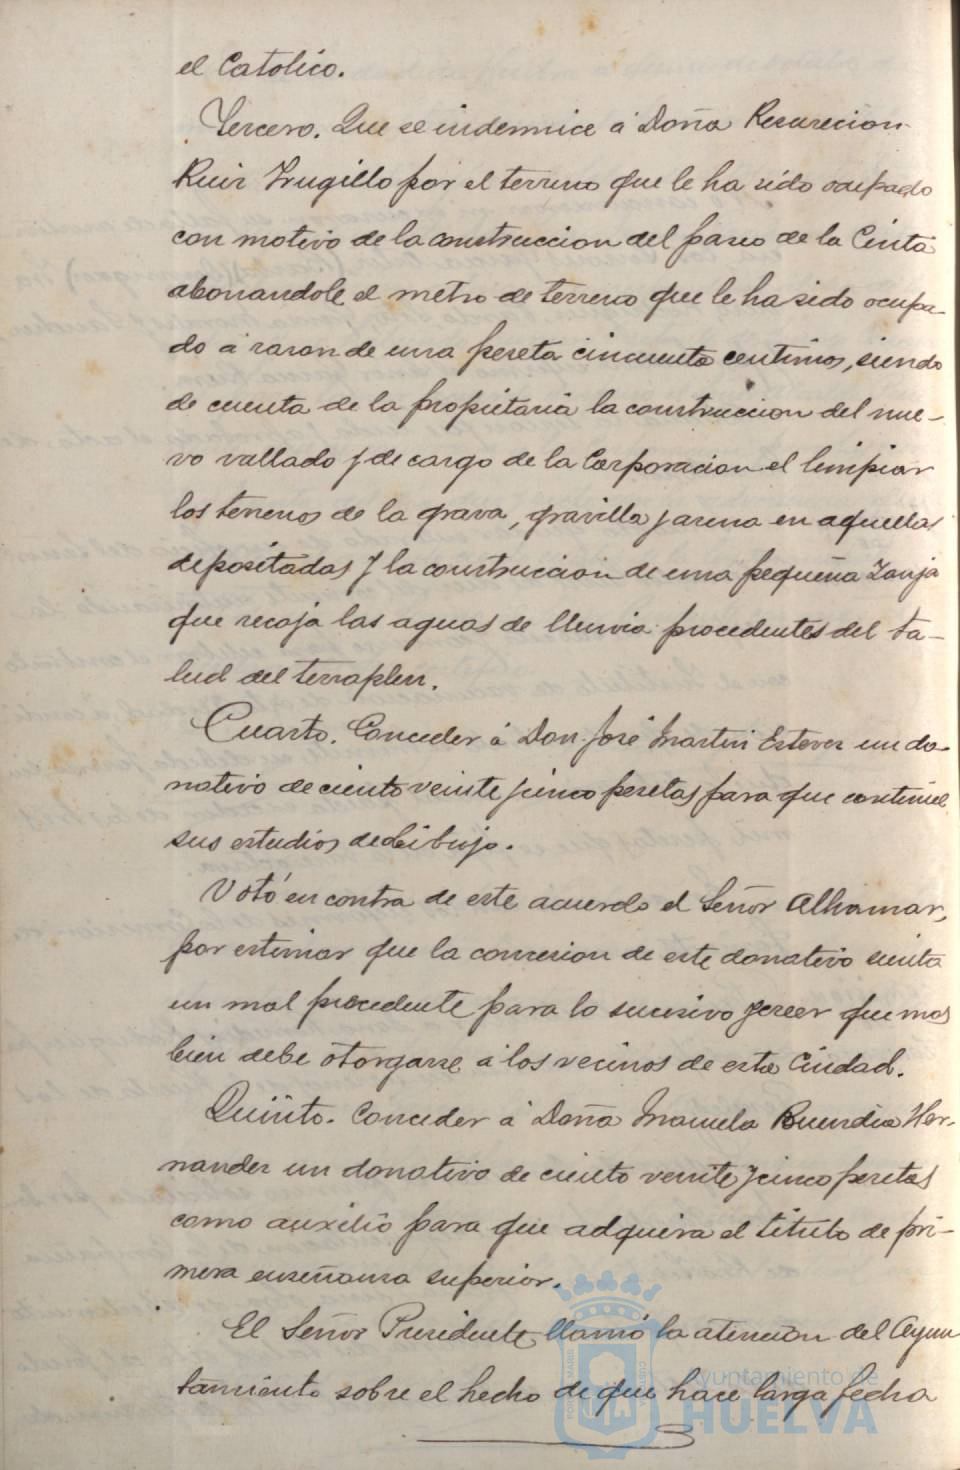 el Catolico.
Tercero. Que se indemnice á Doña Resurecion
Ruiz Trugillo por el terreno que le ha sido ocupado
con motivo de la construccion del paseo de la Cinta
abonandole el metro de terreno que le ha sido ocupa-
do á razon de una peseta cincuenta centimos, siendo
de cuenta de la propietaria la construccion del nue-
vo vallado y de cargo de la Corporacion el limpiar
los terrenos de la grava, gravilla y arena en aquellas
depositadas y la construccion de una pequeña zanja
que recoja las aguas de lluvia procedentes del ta-
lud del terraplen.
Cuarto. Conceder á Don José Martin Estevez un do-
nativo de ciento veinte y cinco pesetas para que continúe
sus estudios de dibujo.
Votó en contra de este acuerdo el Señor Alhamar,
por estimar que la concesion de este donativo sienta
un mal precedente para lo sucesivo y creer que mas
bien debe otorgarse á los vecinos de esta Ciudad.
Quinto. Conceder á Doña Manuela Buendia Her-
nandez un donativo de ciento veinte y cinco pesetas
como auxilio para que adquiera el titulo de pri-
mera enseñanza superior.
El Señor Presidente llamó la atencion del Ayun
tamiento sobre el hecho de que hace larga fecha
Ayuntamiento de
HUELVA